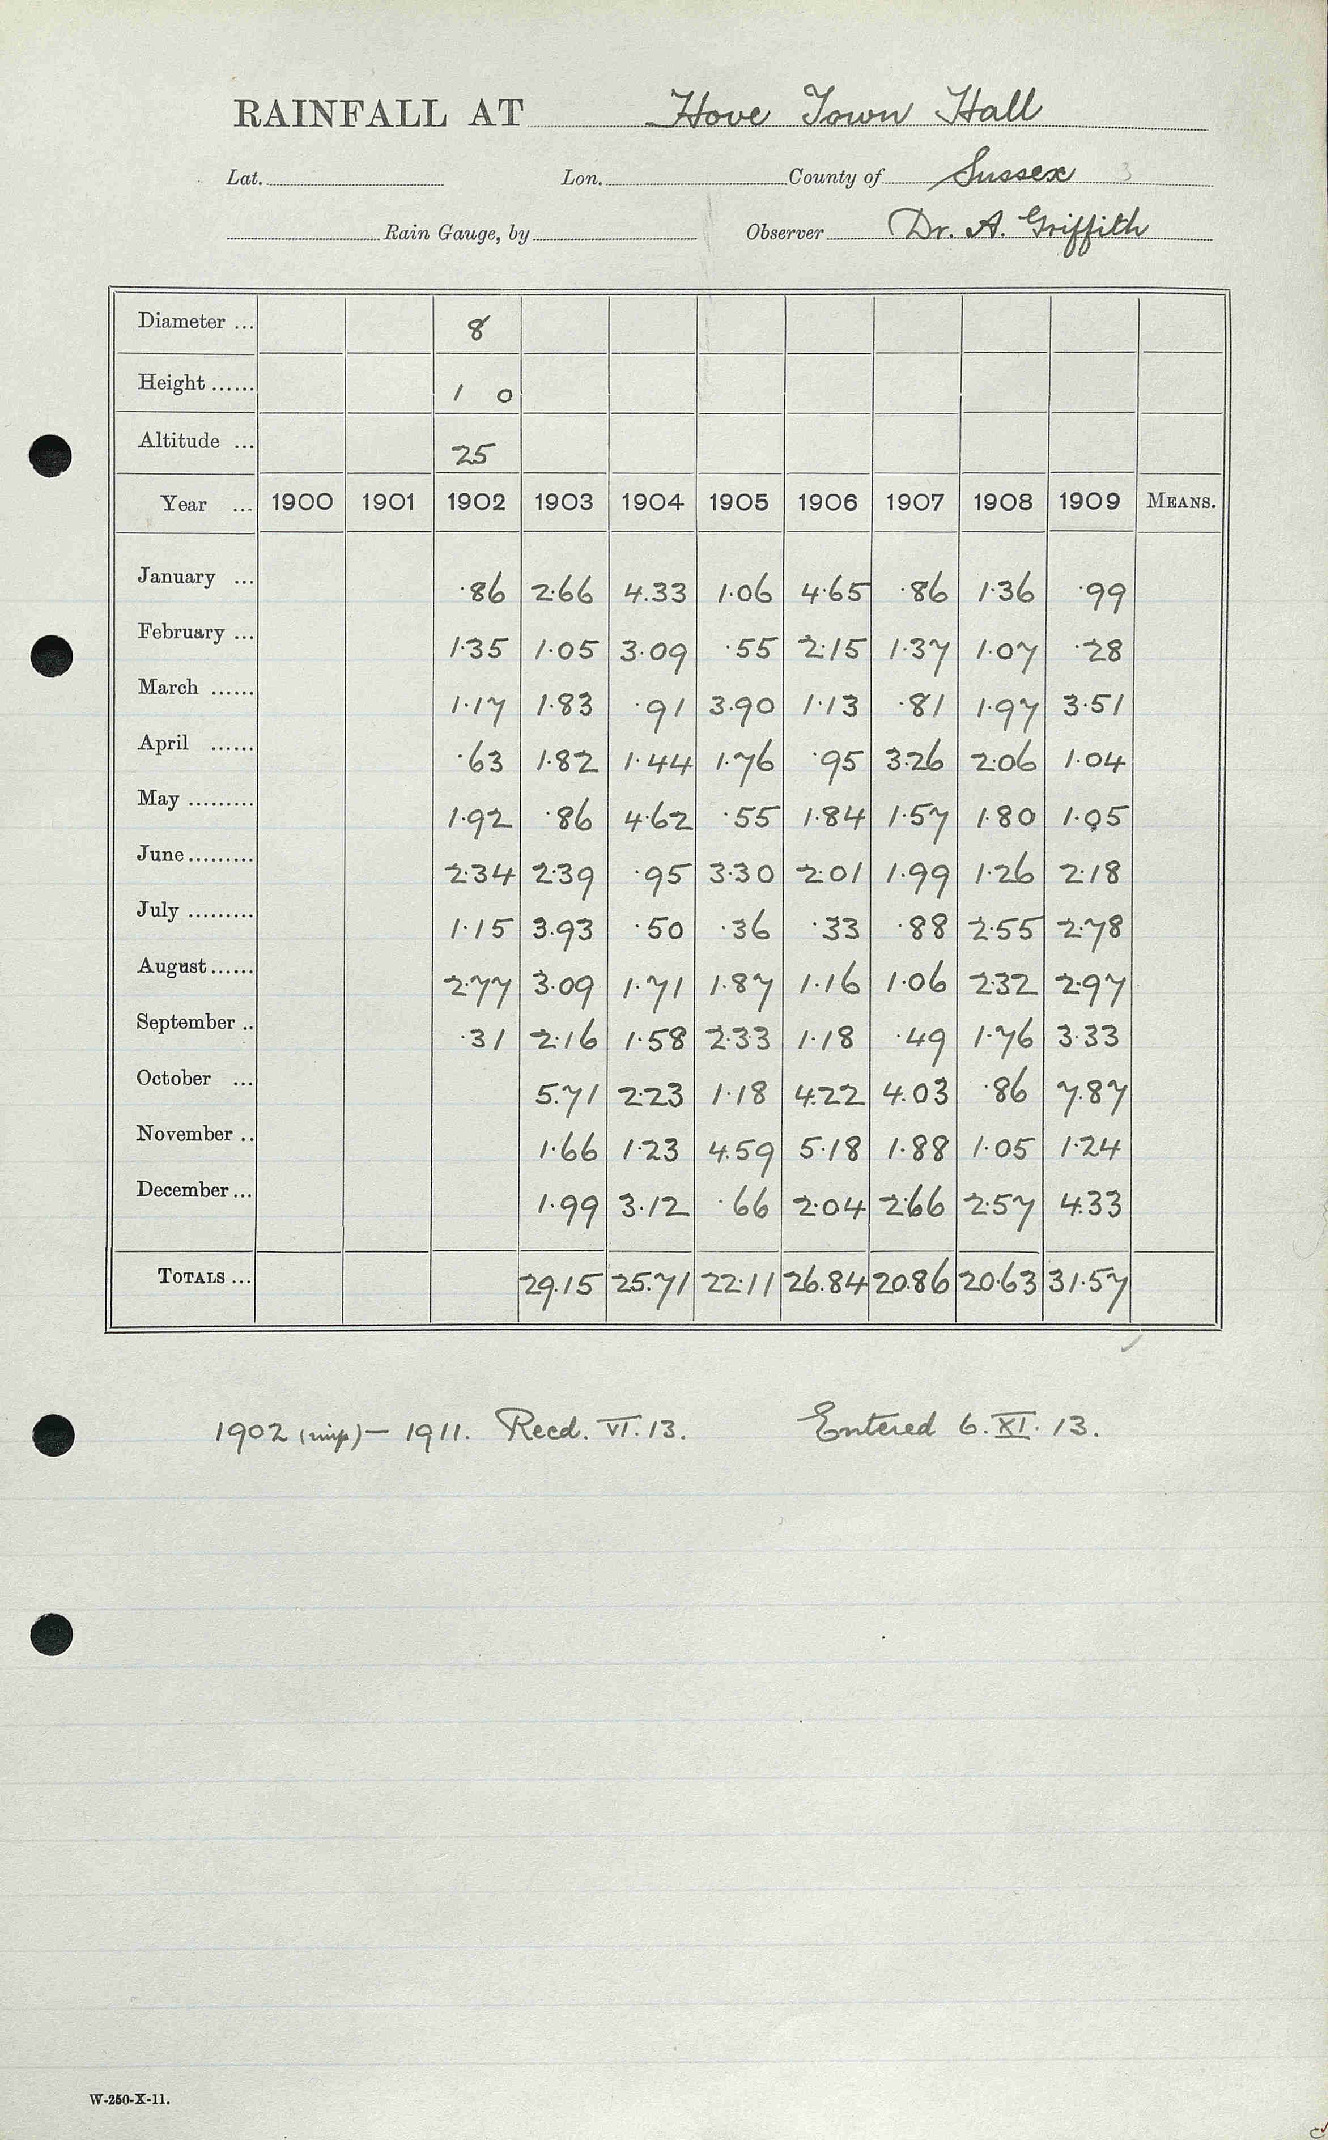 RAINFALL AT Hove Town Hall
Lat. Lon. County of Sussex 3
Rain Gauge, by Observer Dr. A. Griffith
Diameter ... 8
Height ...... 1 0
Altitude ... 25
Year ... 1900 1901 1902 1903 1904 1905 1906 1907 1908 1909 MEANS.
January ... ·86 2·66 4.33 1·06 4·65 ·86 1·36 ·99
February ... 1·35 1·05 3·09 ·55 2·15 1·37 1·07 ·28
March ...... 1·17 1·83 ·91 3·90 1·13 ·81 1·97 3·51
April ...... ·63 1·82 1·44 1·76 ·95 3·26 2·06 1·04
May ......... 1·92 ·86 4·62 ·55 1·84 1·57 1·80 1·05
June ......... 2·34 2·39 ·95 3·30 2·01 1·99 1·26 2·18
July ......... 1·15 3·93 ·50 ·36 ·33 ·88 2·55 2·78
August ...... 2·77 3·09 1·71 1·87 1·16 1·06 2·32 2·97
September .. ·31 2·16 1·58 2·33 1·18 ·49 1·76 3·33
October ... 5·71 2·23 1·18 4·22 4·03 ·86 7·87
November .. 1·66 1·23 4·59 5·18 1·88 1·05 1·24
December ... 1·99 3·12 ·66 2·04 2·66 2·57 4·33
TOTALS ... 29·15 25·71 22·11 26·84 20·86 20·63 31·57
1902 (imp) – 1911. Recd. VI. 13. Entered 6. XI. 13.
W-250-X-11.